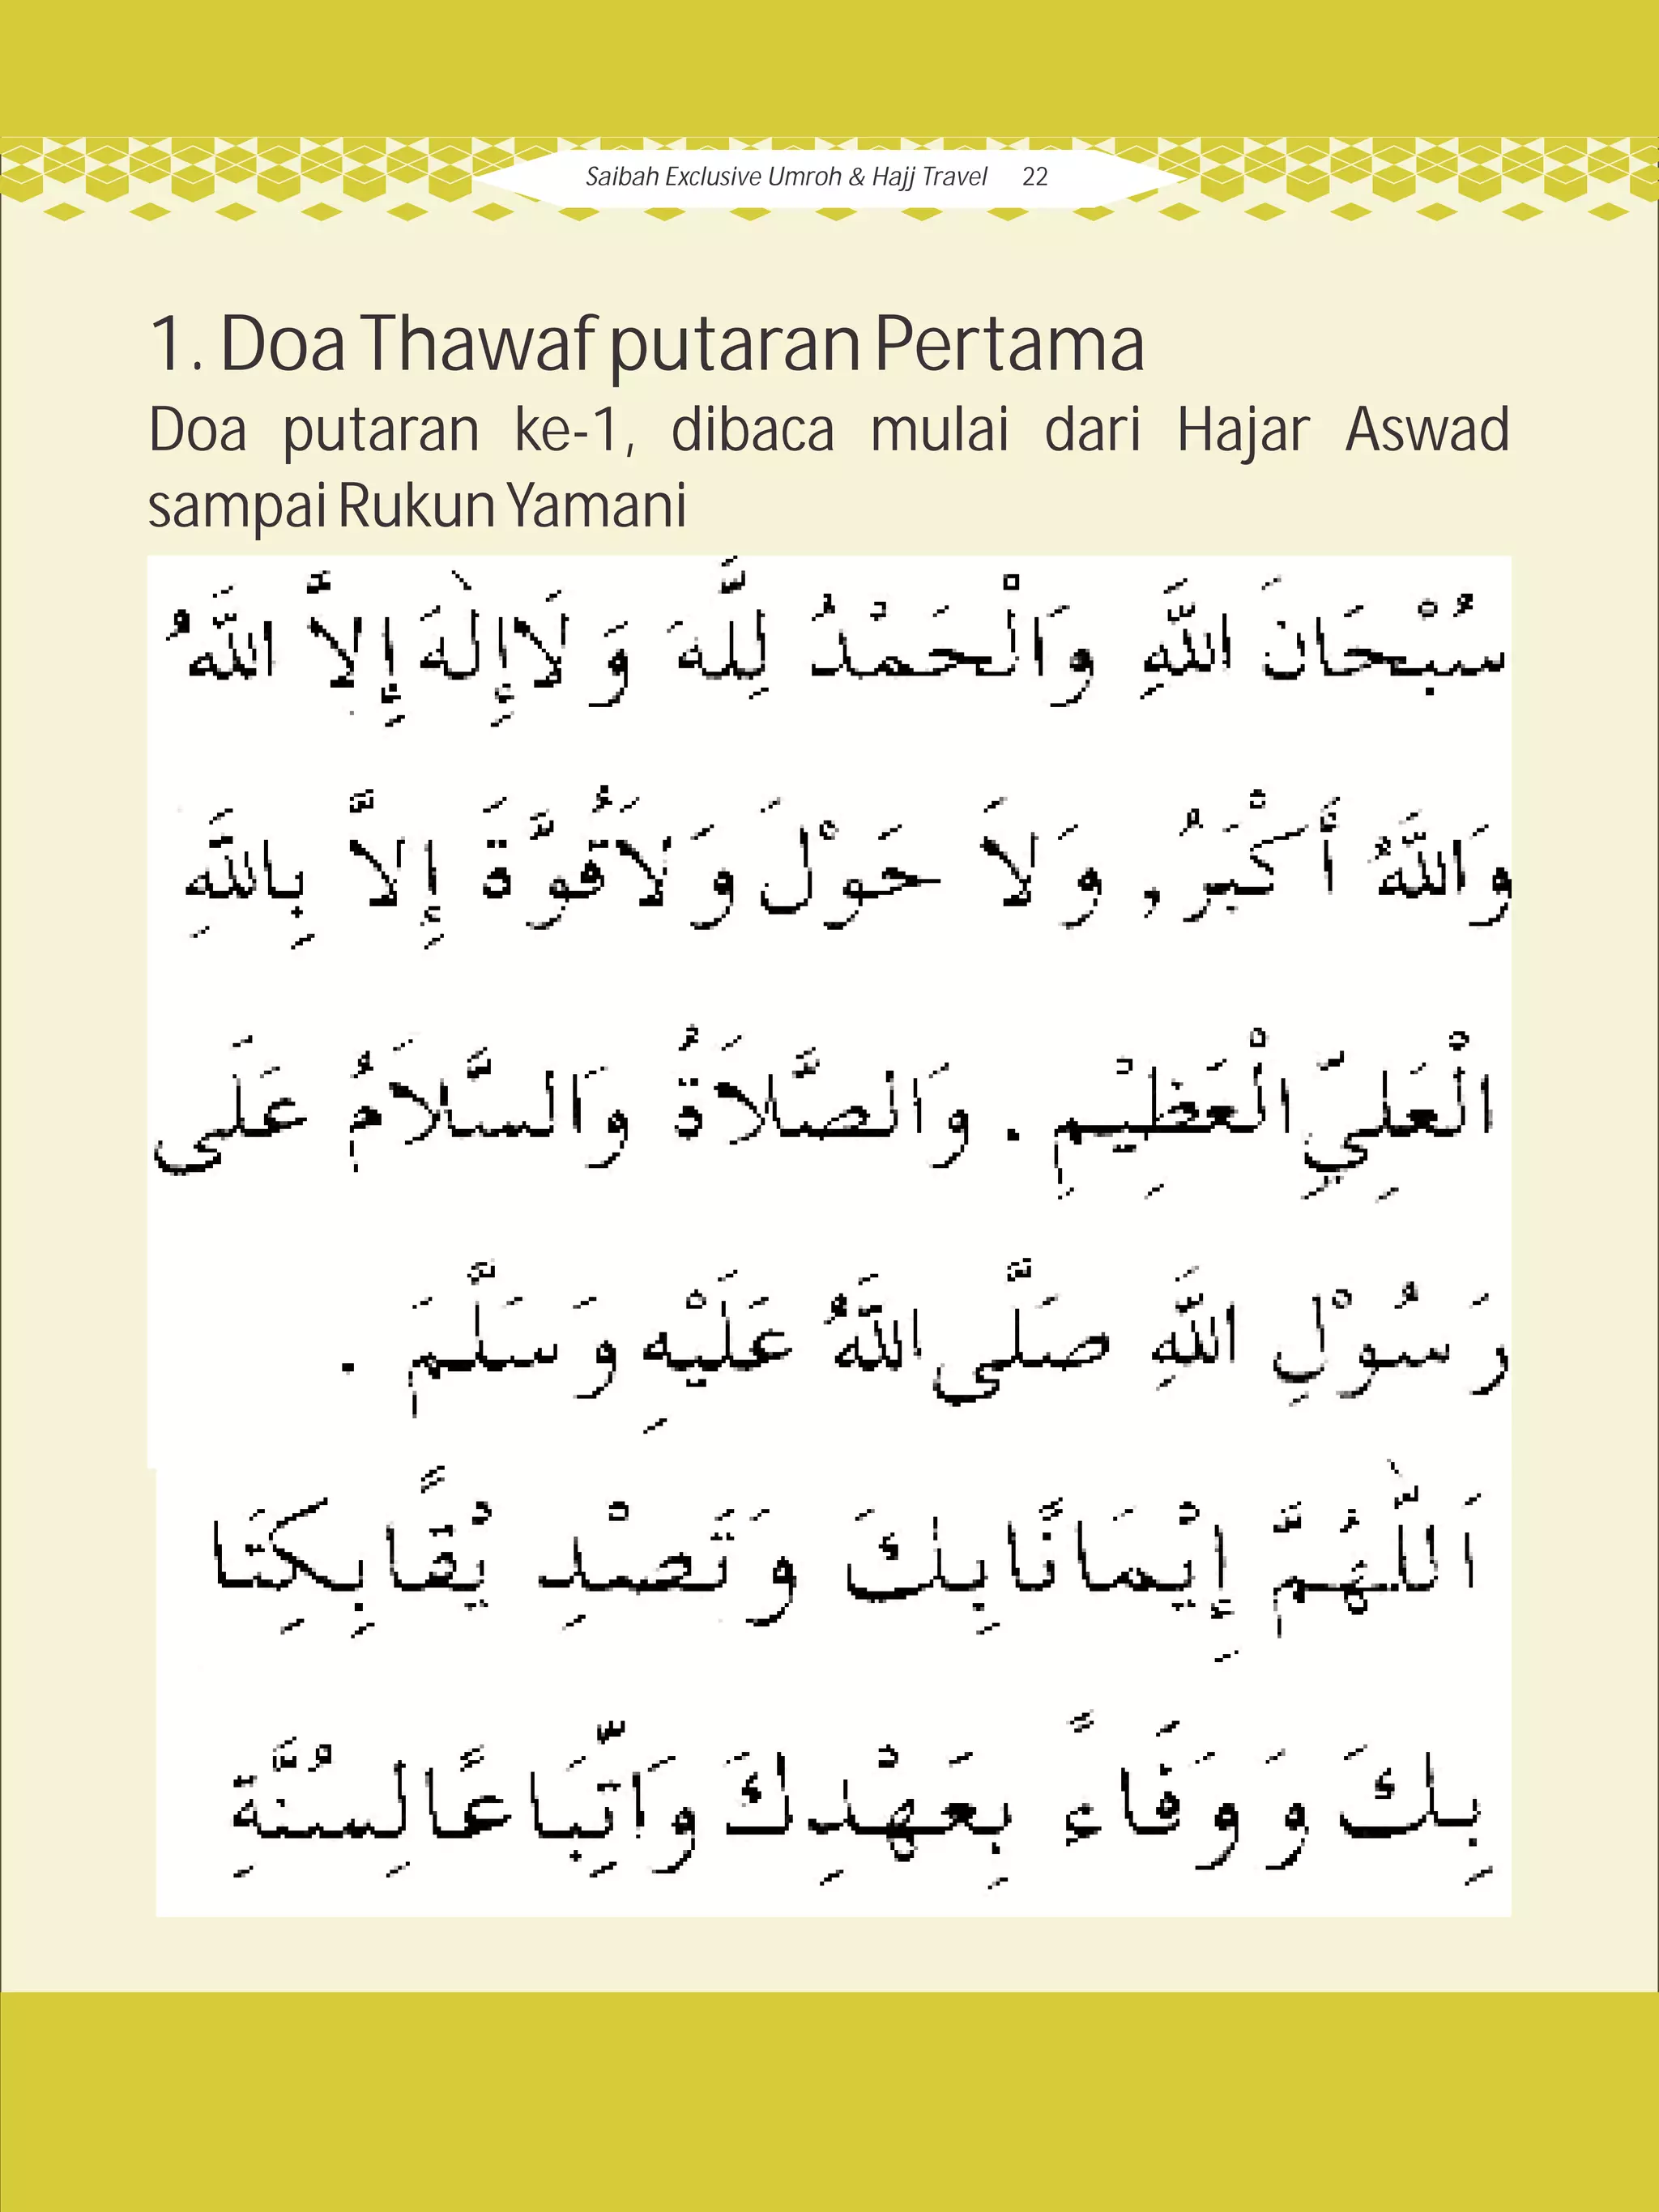 Saibah Exclusive Umroh & Hajj Travel 22
1. Doa Thawaf putaran Pertama
Doa putaran ke-1, dibaca mulai dari Hajar Aswad
sampai Rukun Yamani
سُبْحَانَ اللَّهِ وَالْحَمْدُ لِلَّهَ وَلَاإِلٰهَ إِلاَّ اللَّهُ
وَاللَّهُ أَكْبَرُ, وَلاَ حَوْلَ وَلاَقُوَّةَ إِلاَّ بِاللَّهِ
الْعَلِيِّ الْعَظِيْمِ . وَالصَّلاَةُ وَالسَّلاَمُ عَلَى
رَسُوْلِ اللَّهِ صَلَّى اللَّهُ عَلَيْهِ وَسَلَّمَ .
اَللّٰهُمَّ إِيْمَانًابِكَ وَتَصْدِ يْقًابِكِتَا
بِكَ وَ وَفَاءً بِعَهْدِكَ وَاتِّبَاعًالِسُنَّةِ